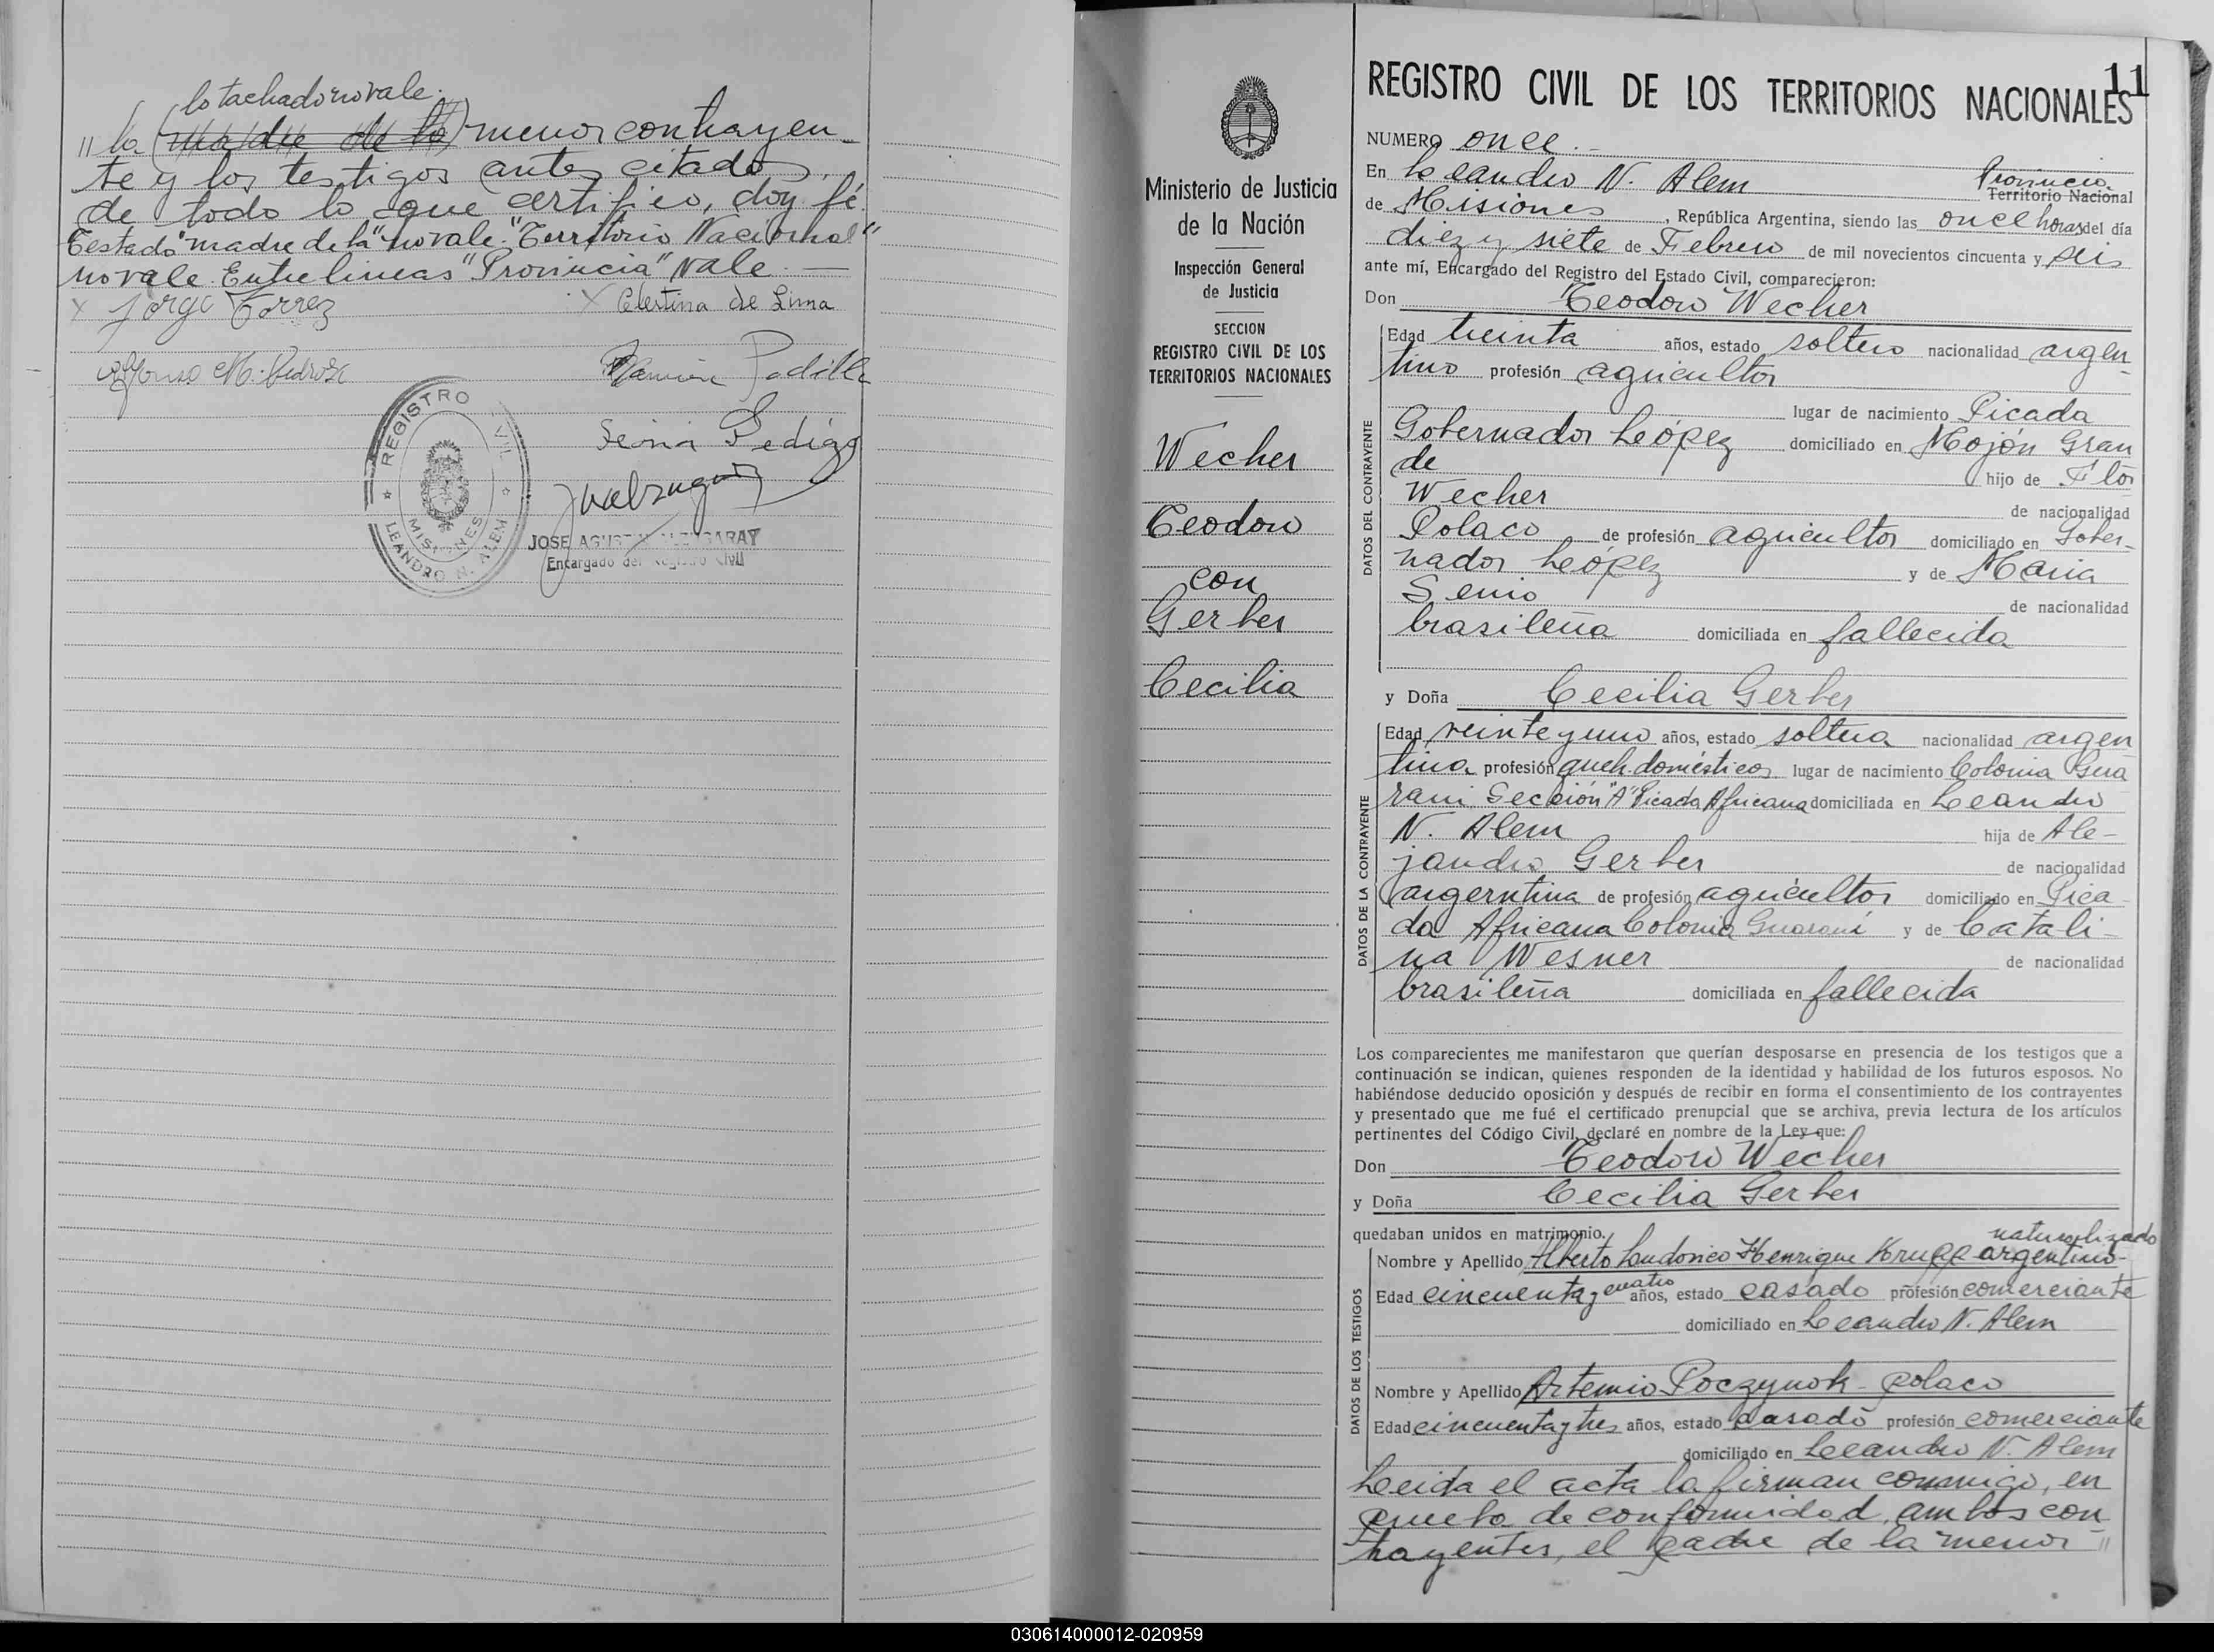 lo tachado no vale.
" la (madre de la) menor contrayen
te y los testigos antes citados,
de todo lo que certifico, doy fé.
Testado "madre de la" no vale. "Territorio Nacional"
no vale. Entre lineas "Provincia" Vale. —
x Jorge Torrez x Celestina de Lima
Alfonso M. Pedroso Ramón Padilla
REGISTRO CIVIL
MISIONES
LEANDRO N. ALEM
JOSE AGUSTIN
Encargado del Registro Civil
11
Ministerio de Justicia
de la Nación
Inspección General
de Justicia
SECCION
REGISTRO CIVIL DE LOS
TERRITORIOS NACIONALES
Wecher
Teodoro
con
Gerber
Cecilia
REGISTRO CIVIL DE LOS TERRITORIOS NACIONALES
NUMERO once.-
En Leandro N. Alem Provincia Territorio Nacional
de Misiones, República Argentina, siendo las once horas del día
diez y siete de Febrero de mil novecientos cincuenta y seis
ante mí, Encargado del Registro del Estado Civil, comparecieron:
Don Teodoro Wecher
DATOS DEL CONTRAYENTE
Edad treinta años, estado soltero nacionalidad argen
tino profesión agricultor
lugar de nacimiento Picada
Gobernador López domiciliado en Mojón Gran
de hijo de Flor
Wecher de nacionalidad
Polaco de profesión agricultor domiciliado en Gober-
nador López y de Maria
Senio de nacionalidad
brasileña domiciliada en fallecida
y Doña Cecilia Gerber
DATOS DE LA CONTRAYENTE
Edad veinte y uno años, estado soltera nacionalidad argen
tina profesión queh. domésticos lugar de nacimiento Colonia Gua
rani Sección "A" Picada Africana domiciliada en Leandro
N. Alem hija de Ale-
jandro Gerber de nacionalidad
argerntina de profesión agricultor domiciliado en Pica-
da Africana Colonia Guaraní y de Catali-
na Wesner de nacionalidad
brasileña domiciliada en fallecida
Los comparecientes me manifestaron que querían desposarse en presencia de los testigos que a
continuación se indican, quienes responden de la identidad y habilidad de los futuros esposos. No
habiéndose deducido oposición y después de recibir en forma el consentimiento de los contrayentes
y presentado que me fué el certificado prenupcial que se archiva, previa lectura de los artículos
pertinentes del Código Civil, declaré en nombre de la Ley que:
Don Teodoro Wecher
y Doña Cecilia Gerber
quedaban unidos en matrimonio. naturalizado
DATOS DE LOS TESTIGOS
Nombre y Apellido Alberto Ludovico Henrique Krupp argentino-
Edad cincuenta y cuatro años, estado casado profesión comerciante
domiciliado en Leandro N. Alem
Nombre y Apellido Artemio Poczynok - polaco
Edad cincuenta y tres años, estado casado profesión comerciante
domiciliado en Leeandro N. Alem
Leida el acta la firman conmigo, en
prueba de conformidad, ambos con
trayentes, el padre de la menor "
030614000012-020959